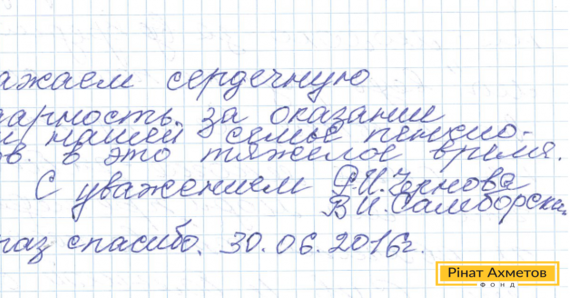 ажаем сердечную
дарность за оказании
и нашей семье пенсио-
ов. в это тяжёлое время.
С уважением
В.И. Самборски
раз спасибо. 30.06.2016г.
Рінат Ахметов
ФОНД